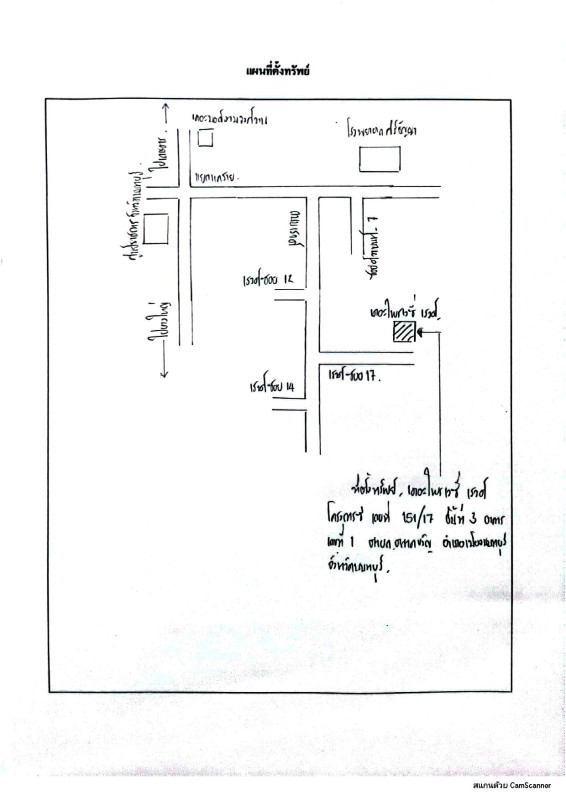 แผนที่ตั้งทรัพย์
เดอะมอลล์งามวงศ์วาน
โรงพยาบาลศรีธัญญา
แยกแคราย.
ศูนย์ราชการ จังหวัดนนทบุรี
ไปบางใหญ่
ถนนเรวดี
เรวดี-ซอย 12
เดอะไพรเวซี่ เรวดี.
เรวดี-ซอย 17.
เรวดี-ซอย 14
ที่ตั้งทรัพย์. เดอะไพรเวซี่ เรวดี
โครงการ-1 เลขที่ 151/17 ชั้นที่ 3 อาคาร
เลขที่ 1 ตำบลตลาดขวัญ อำเภอเมืองนนทบุรี
จังหวัดนนทบุรี.
สแกนด้วย CamScanner